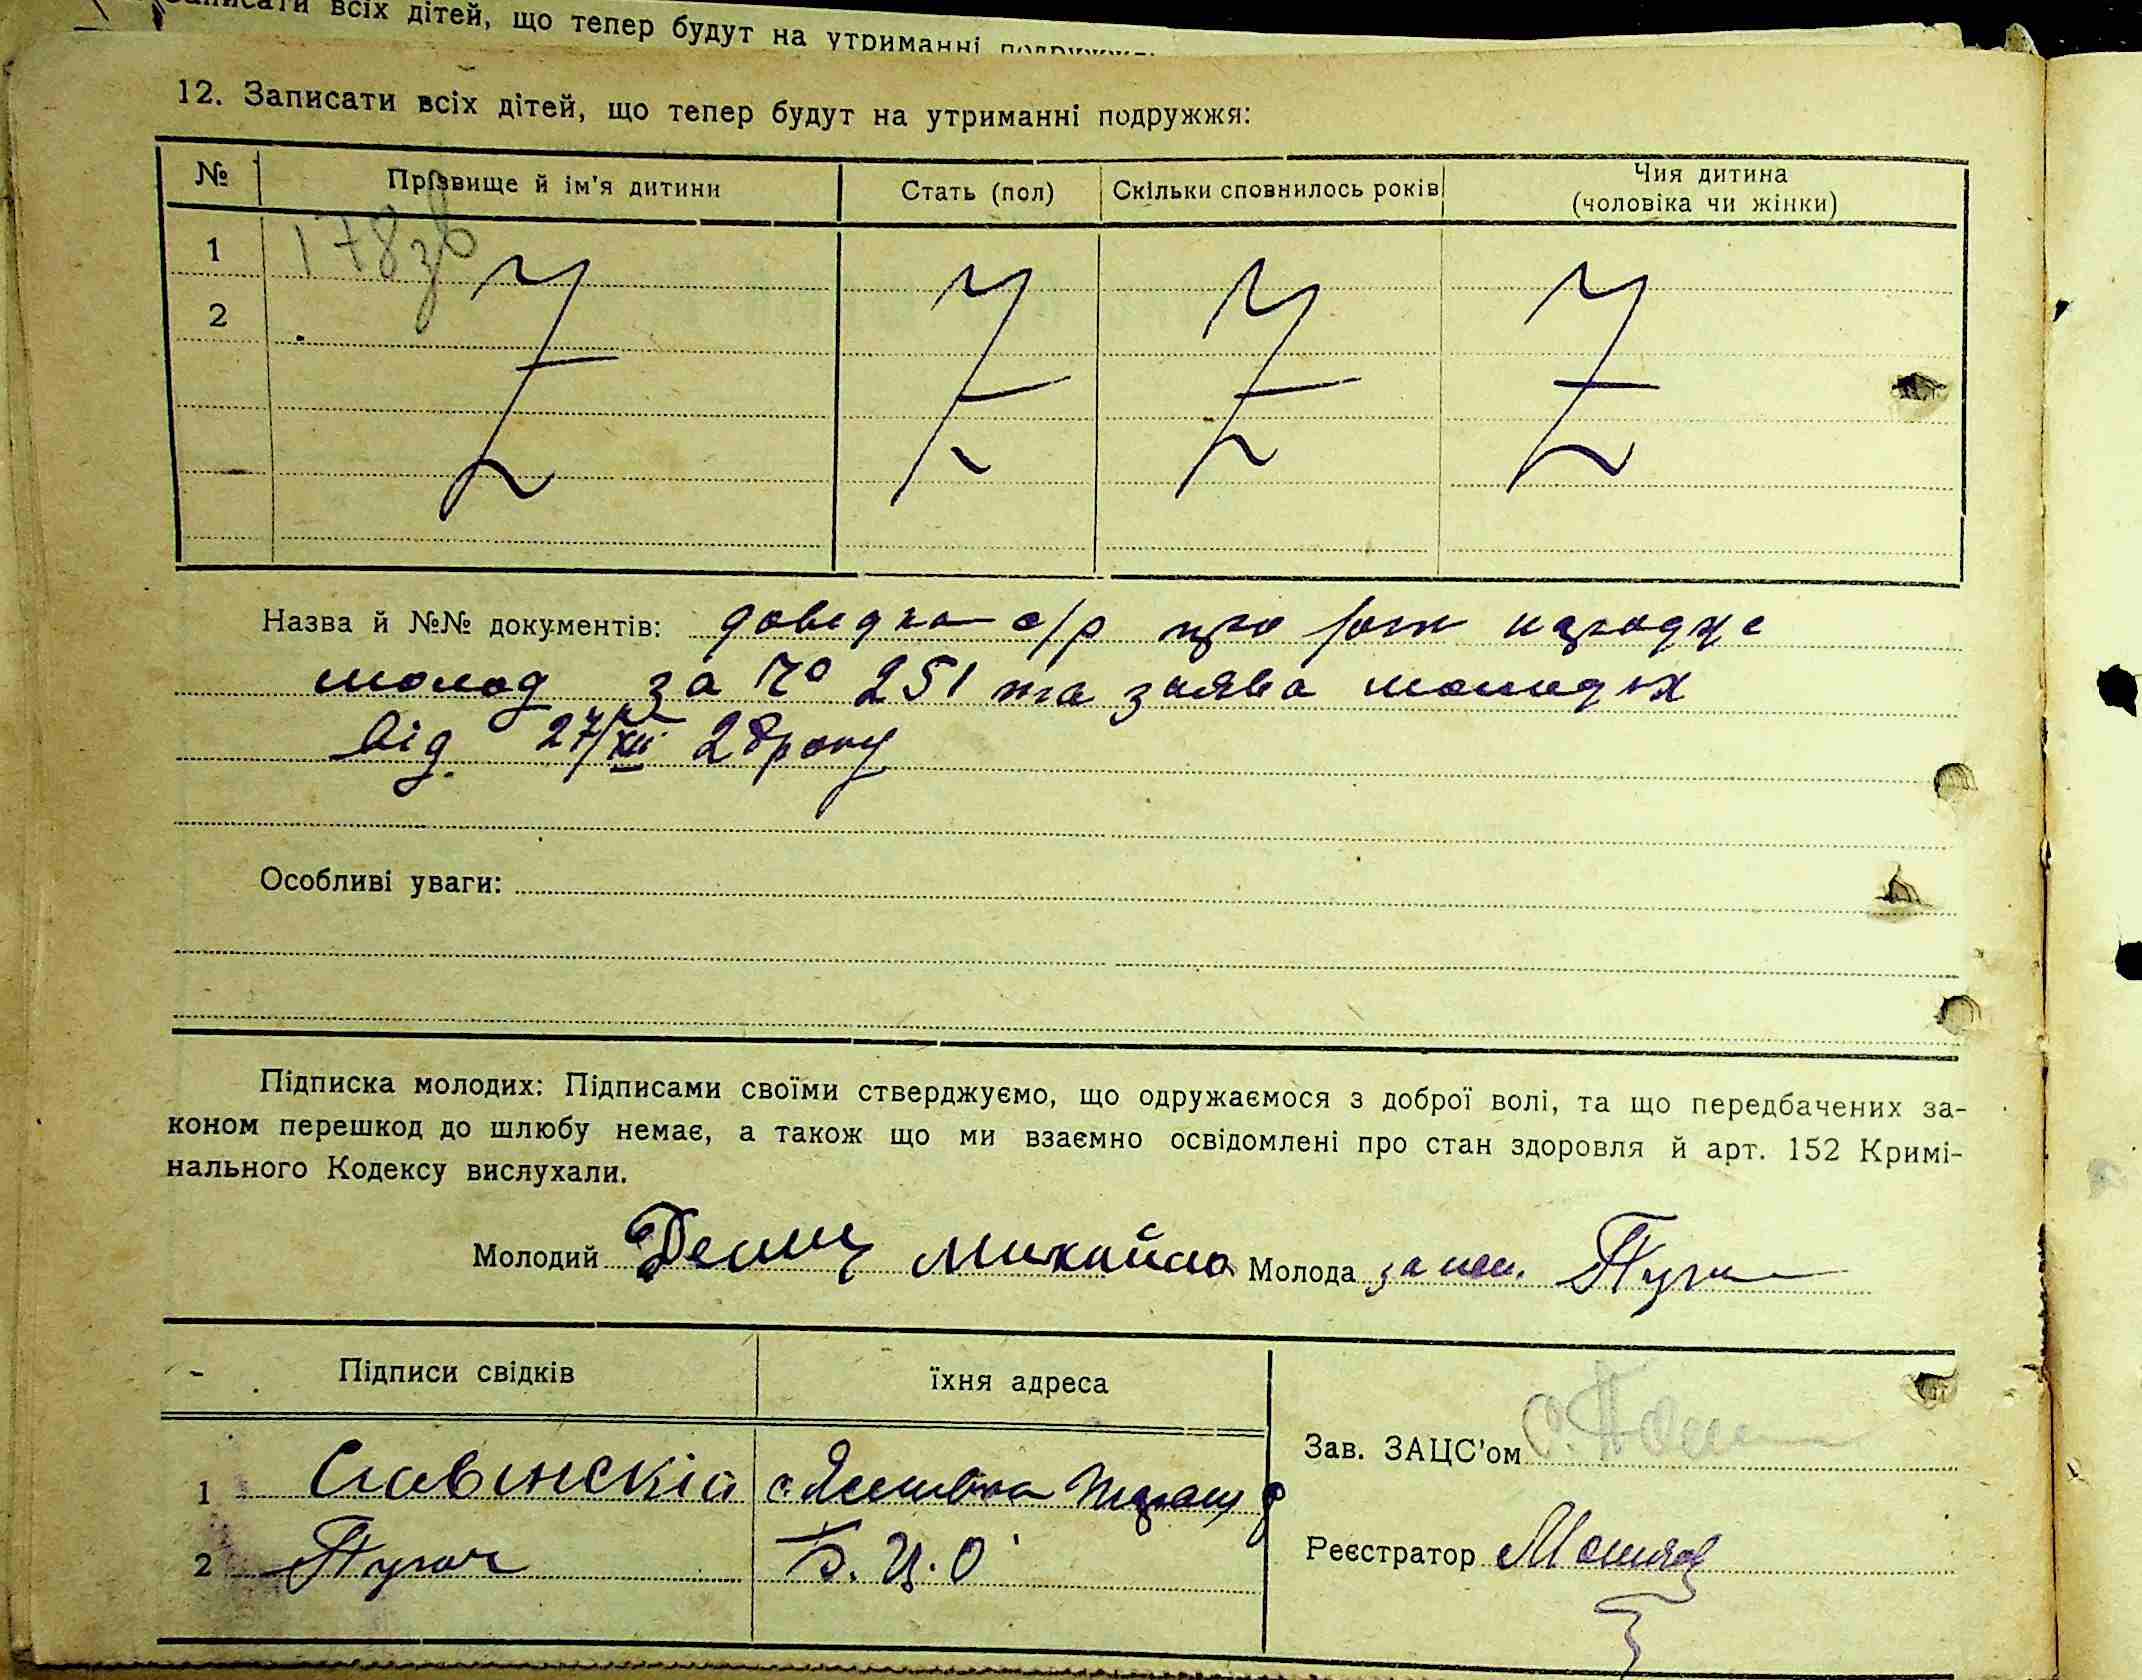 Записати всіх дітей, що тепер будут на утриманні
12. Записати всіх дітей, що тепер будут на утриманні подружжя:
№ Прізвище й ім'я дитини Стать (пол) Скільки сповнилось років Чия дитина (чоловіка чи жінки)
178зв
1
2
Назва й №№ документів: довідка с/р про народже
молод за № 251 та заява молодих
від 27/XII 28 року
Особливі уваги:
Підписка молодих: Підписами своїми стверджуємо, що одружаємося з доброї волі, та що передбачених за-
коном перешкод до шлюбу немає, а також що ми взаємно освідомлені про стан здоровля й арт. 152 Кримі-
нального Кодексу вислухали.
Молодий Михайло Молода за неп. Пугач
Підписи свідків їхня адреса
Зав. ЗАЦС'ом
1 Славінскій с.
2 Пугач Б. Ц. О
Реєстратор